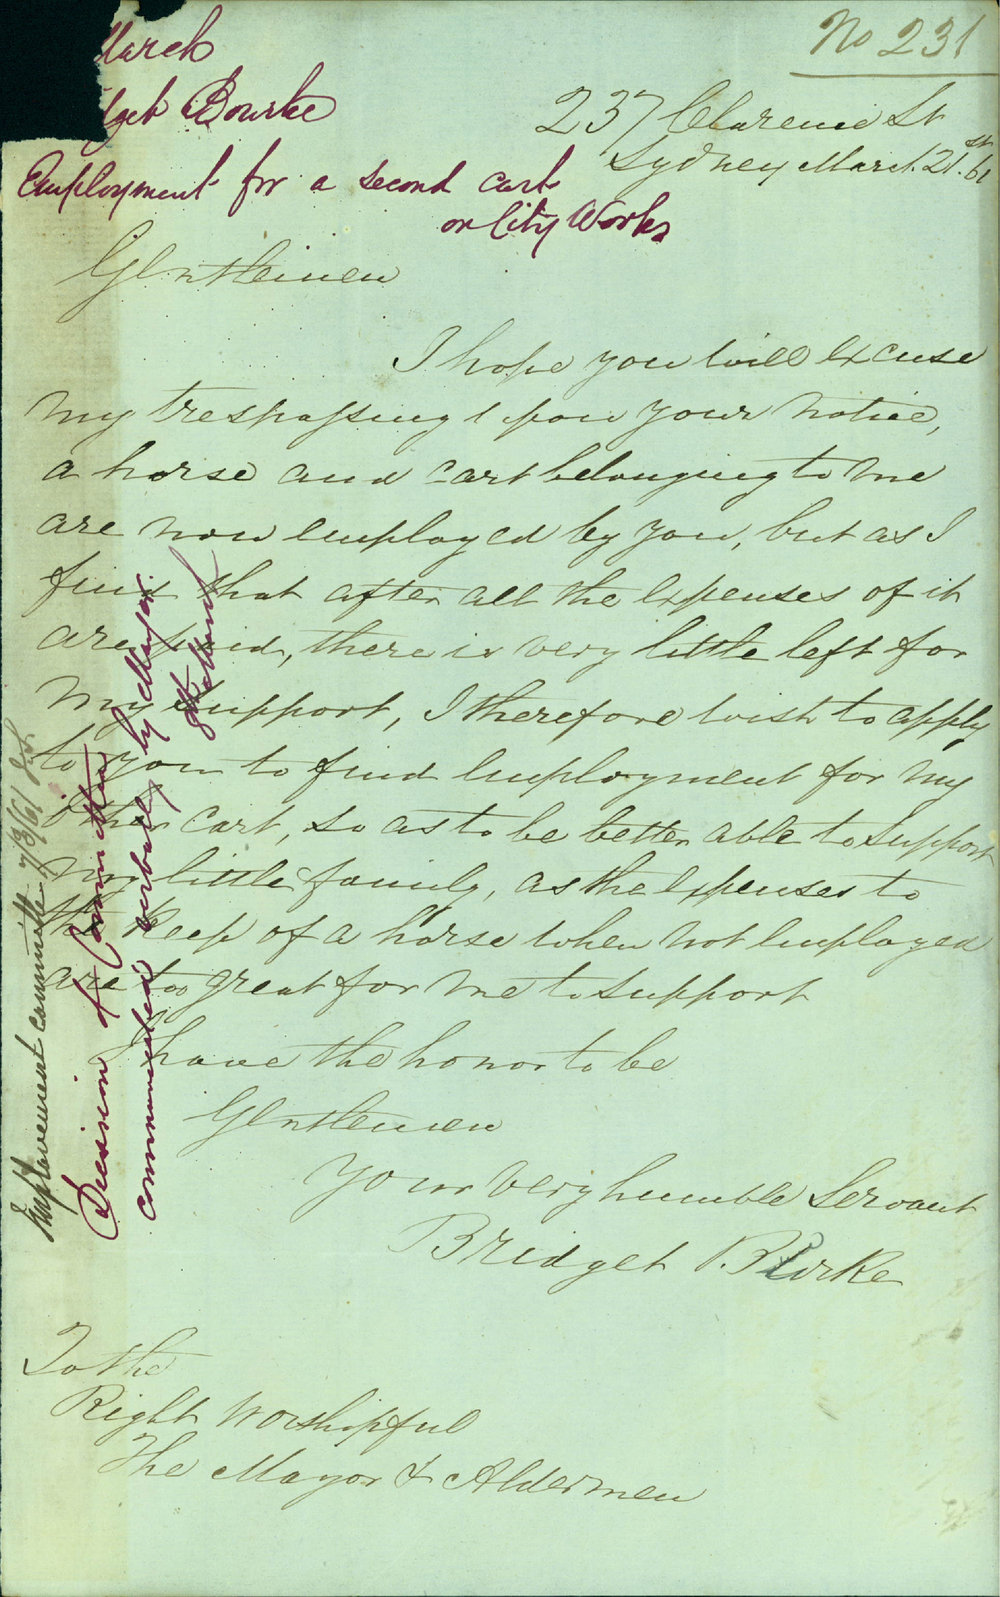 No 231
March
dget Bourke
Employment for a second cart
on City Works
237 Clarence St
Sydney March 21st 61
Gentlemen
I hope you will excuse
my trespassing upon your notice,
a horse and cart belonging to me
are now employed by you, but as I
find that after all the expenses of it
are paid, there is very little left for
my support, I therefore wish to apply
to you to find employment for my
other cart, so as to be better able to support
my little family, as the expenses to
the keep of a horse when not employed
are too great for me to support
I have the honor to be
Gentlemen
Your very humble Servant
Bridget Burke
To the
Right Worshipful
The Mayor & Aldermen
Employement committee 7/3/61
Decision of Committee
communicated verbally by Mayor
March